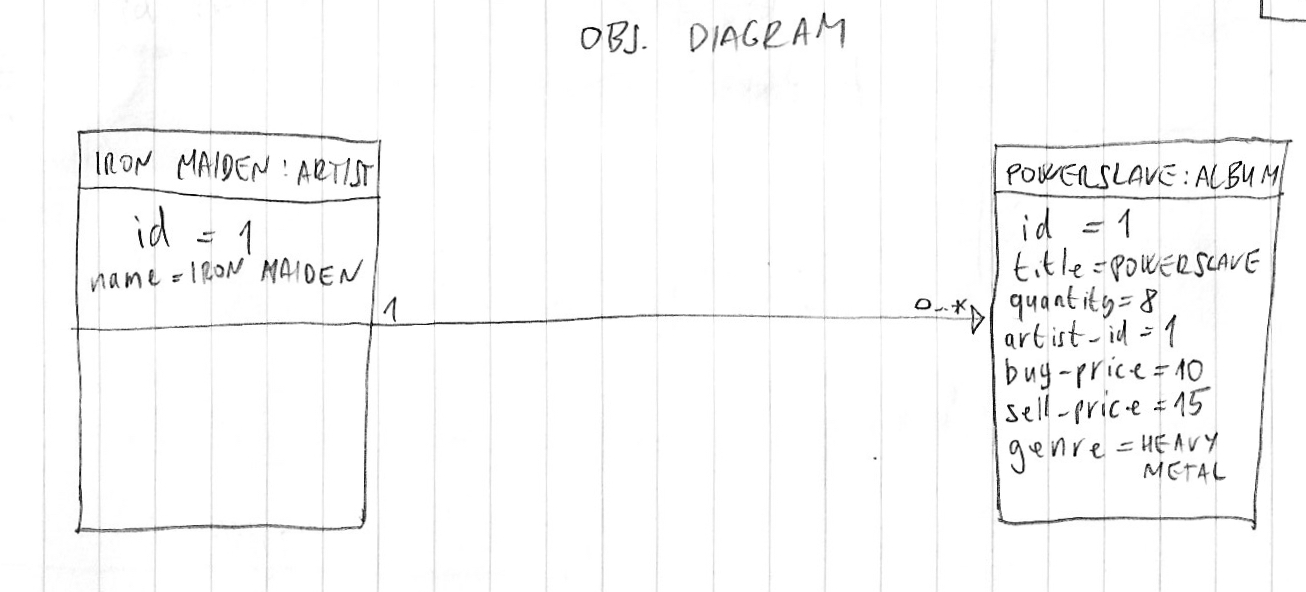 OBJ. DIAGRAM
IRON MAIDEN : ARTIST
id = 1
name = IRON MAIDEN
1
0..*
POWERSLAVE : ALBUM
id = 1
title = POWERSLAVE
quantity = 8
artist_id = 1
buy-price = 10
sell-price = 15
genre = HEAVY
METAL